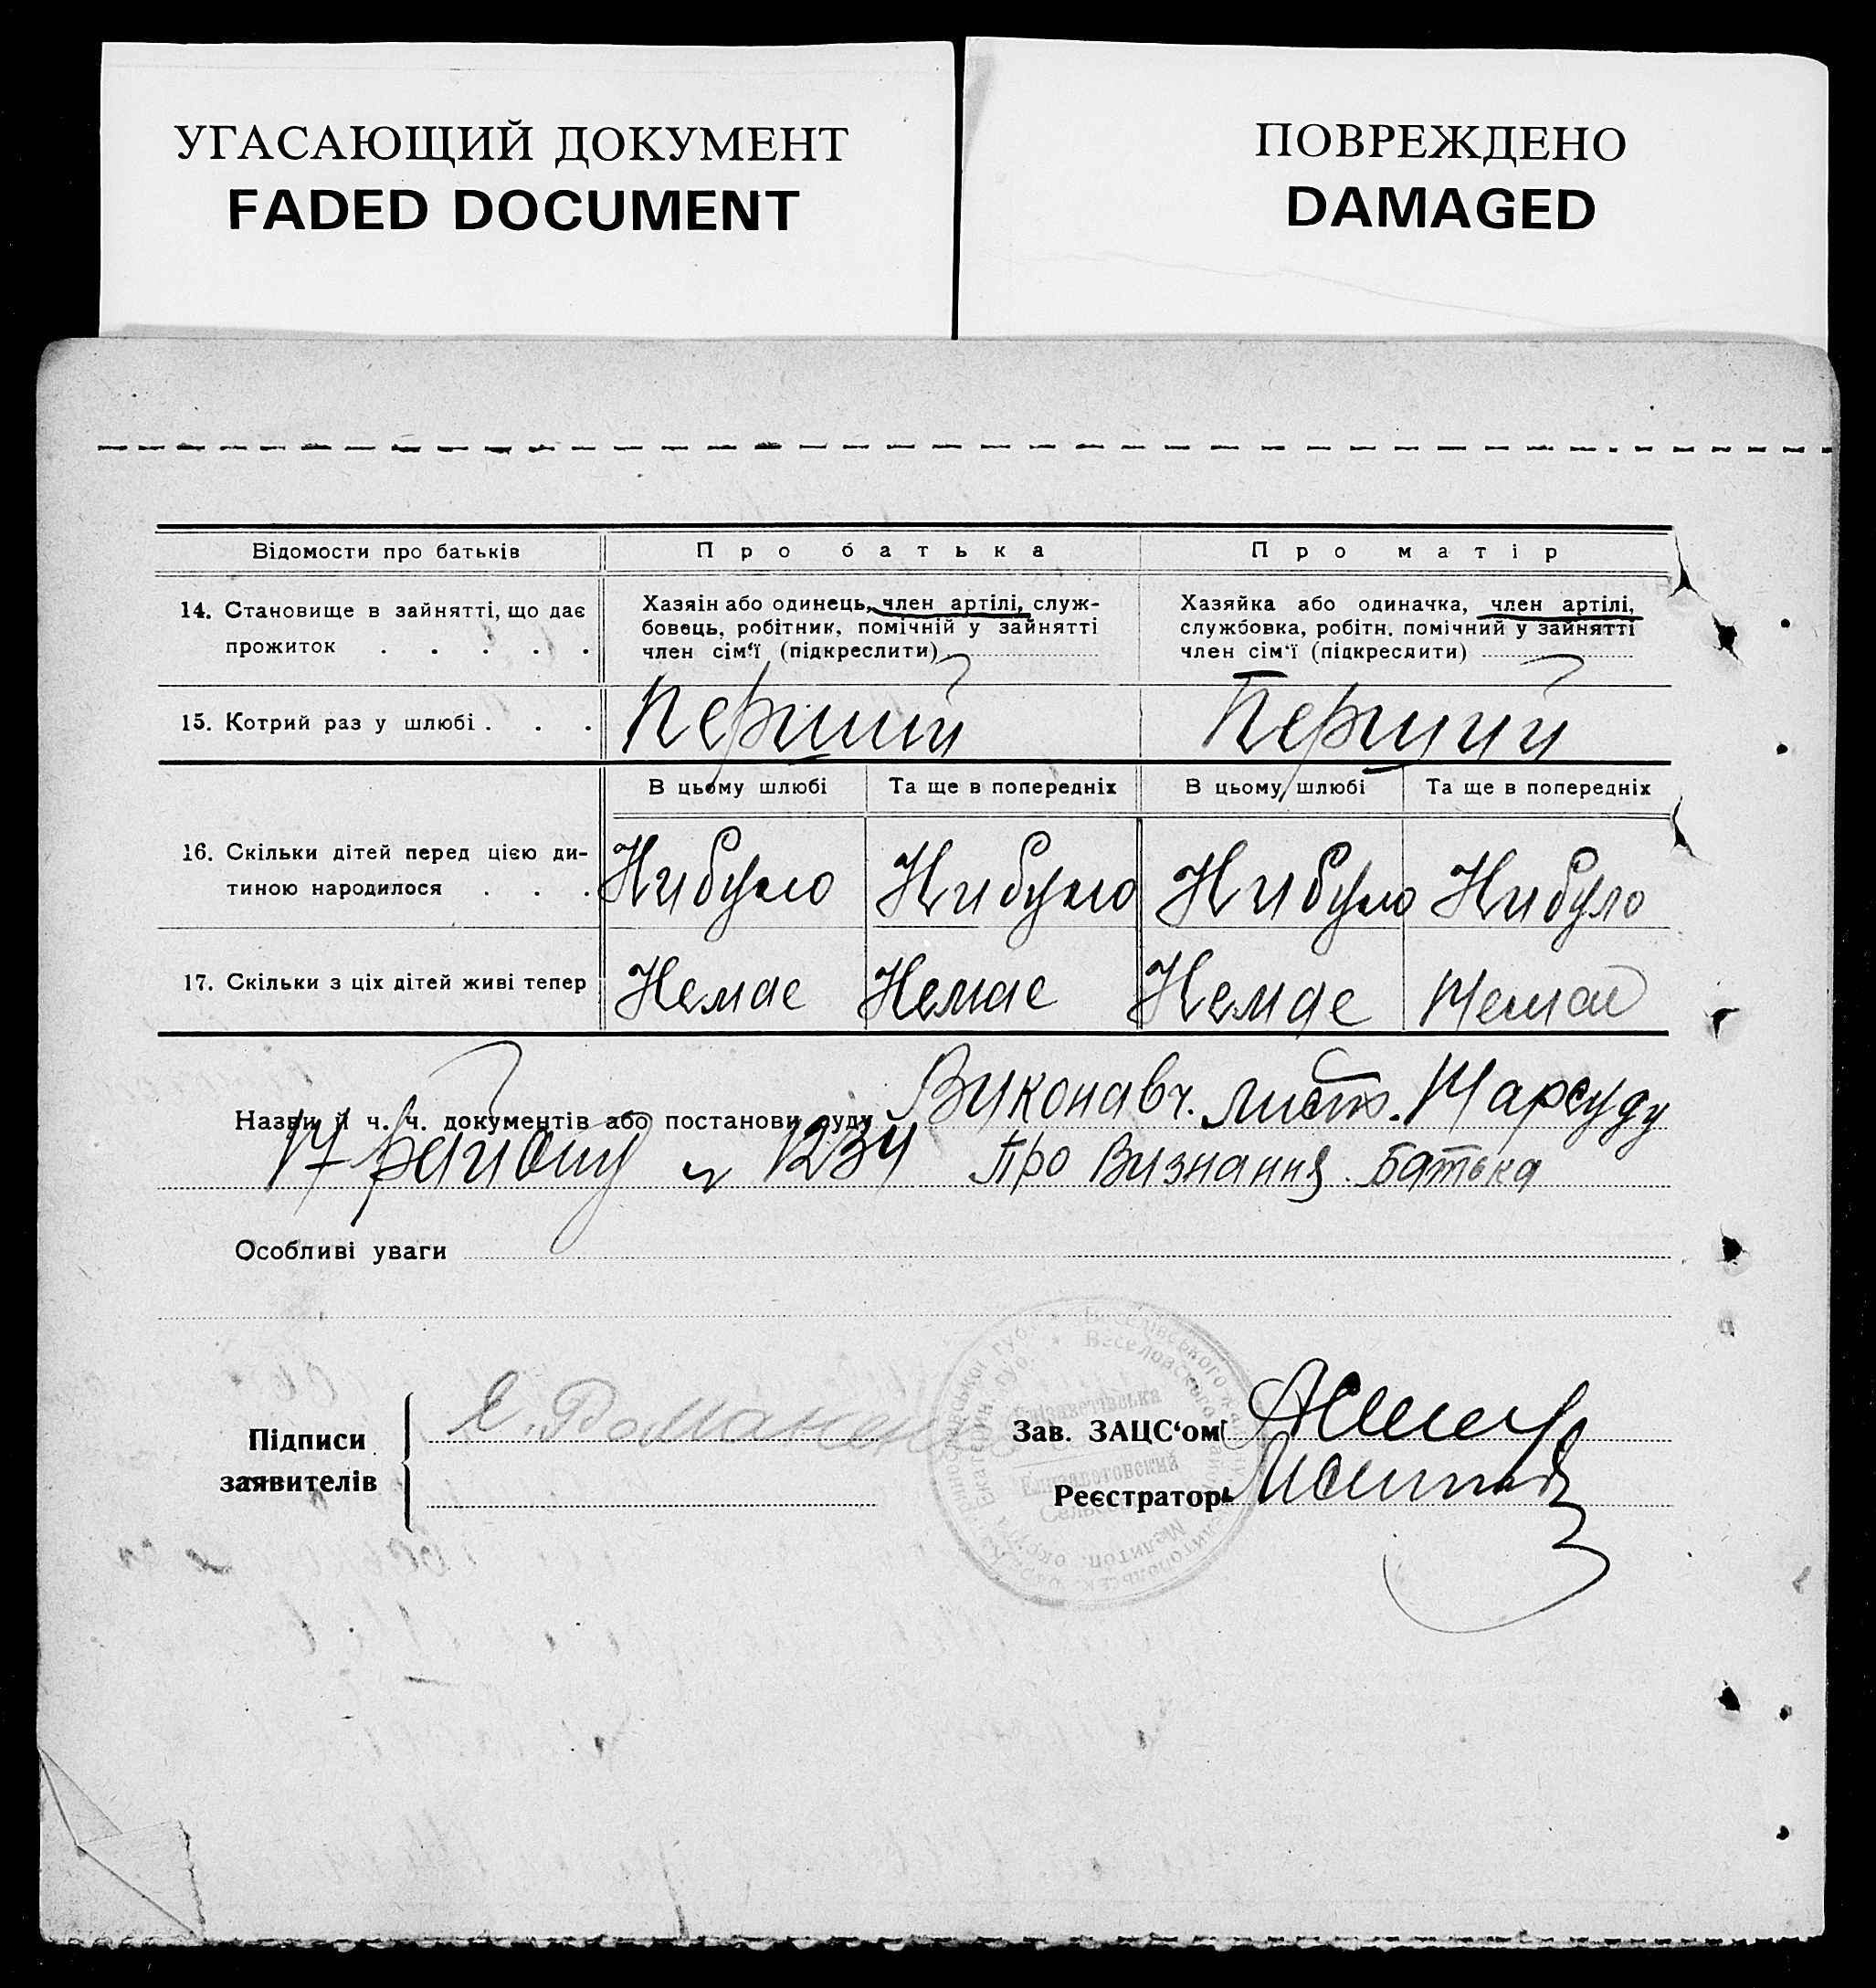 УГАСАЮЩИЙ ДОКУМЕНТ
FADED DOCUMENT
ПОВРЕЖДЕНО
DAMAGED
Відомости про батьків
Про батька
Про матір
14. Становище в зайнятті, що дає
прожиток . . . . .
Хазяін або одинець, член артілі, служ-
бовець, робітник, помічній у зайнятті
член сім‘ї (підкреслити)
Хазяйка або одиначка, член артілі,
службовка, робітн. помічний у зайнятті
член сім‘ї (підкреслити)
15. Котрий раз у шлюбі . . .
Перший
Перший
В цьому шлюбі
Та ще в попередніх
В цьому шлюбі
Та ще в попередніх
16. Скільки дітей перед цією ди-
тиною народилося . . .
Нибуло
Нибуло
Нибуло
Нибуло
17. Скільки з ціх дітей живі тепер
Немае
Немае
Немае
Немае
Назви й ч. ч. документів або постанови суду Виконавч. лист. Нарсуду
17 району 1234 Про Визнання Батька
Особливі уваги
Підписи
заявителів
Зав. ЗАЦС‘ом
Реєстратор
Веселівського
Веселовского
Єлізаветівська
Елизаветовский
Мелитоп. округа